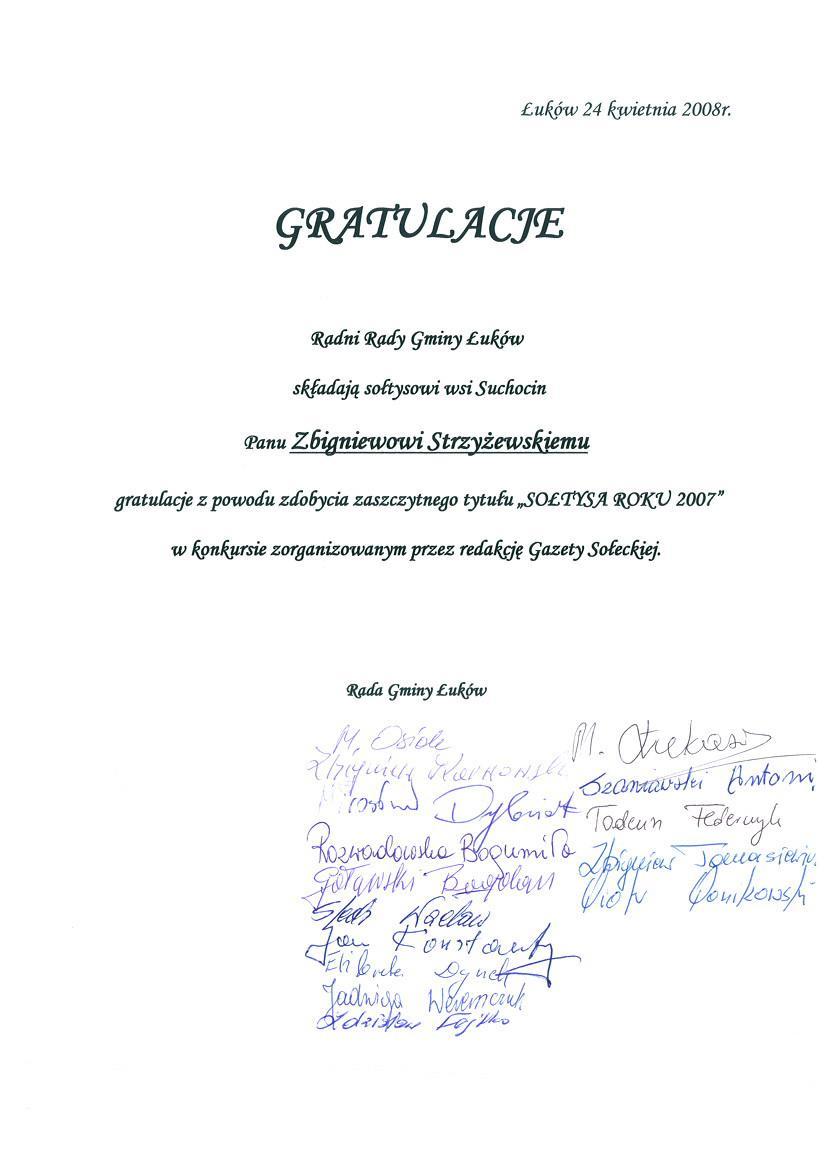 Łuków 24 kwietnia 2008r.
GRATULACJE
Radni Rady Gminy Łuków
składają sołtysowi wsi Suchocin
Panu Zbigniewowi Strzyżewskiemu
gratulacje z powodu zdobycia zaszczytnego tytułu „SOŁTYSA ROKU 2007”
w konkursie zorganizowanym przez redakcję Gazety Sołeckiej.
Rada Gminy Łuków
M. Osiak
Zbigniew
Rozwadowska Bogumiła
Gołąwski Bogdan
Wacław
Jan Konstanty
Elżbieta
Jadwiga Weremczuk
Zdzisław
M.
Szaniawski Antoni
Tadeusz Federczyk
Zbigniew Tomasiewicz
Piotr